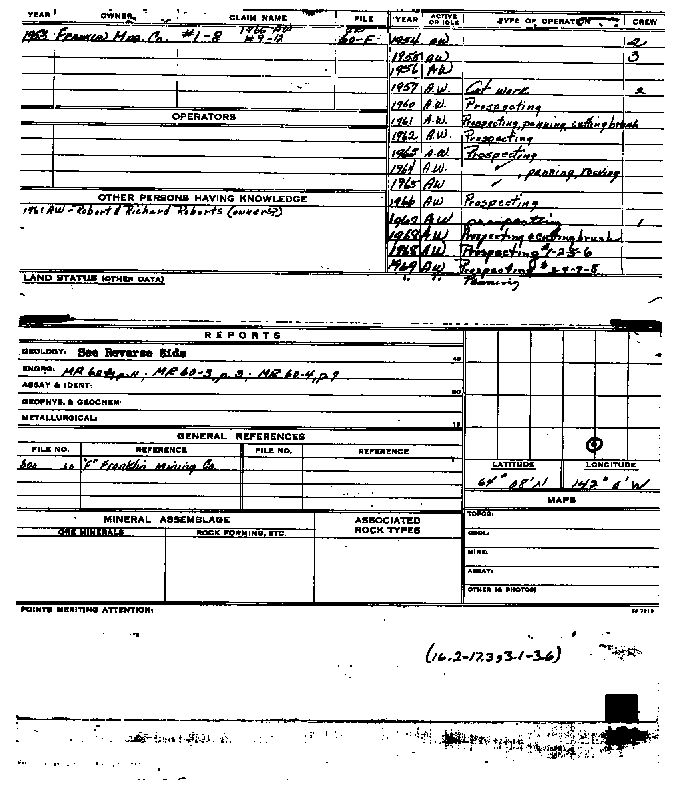 YEAR OWNER CLAIM NAME FILE YEAR ACTIVE OR IDLE TYPE OF OPERATION CREW
1953 Franklin Mng. Co. #1-8 1966 AW #9-12 60-F 1954 AW 2
1955 AW 3
1956 AW
1957 AW Cat work 2
1960 A.W. Prospecting
OPERATORS
1961 A.W. Prospecting, panning, cutting brush
1962 A.W. Prospecting
1963 A.W. Prospecting
1964 A.W. ✓, panning,
1965 AW ✓
OTHER PERSONS HAVING KNOWLEDGE
1966 AW Prospecting
1961 AW - Robert & Richard Roberts (owners?)
1967 AW prospecting 1
1968 AW Prospecting & cutting brush
1968 AW Prospecting #1-2-5-6
1969 AW Prospecting
LAND STATUS (OTHER DATA)
Panning
REPORTS
GEOLOGY: See Reverse Side
ENGRG: p. 11; MR 60-3, p. 3; MR 60-4, p 9
ASSAY & IDENT:
GEOPHYS. & GEOCHEM:
METALLURGICAL:
GENERAL REFERENCES
FILE NO. REFERENCE FILE NO. REFERENCE
60 "F" Franklin Mining Co.
LATITUDE LONGITUDE
64° 08' N 142° 6' W
MAPS
MINERAL ASSEMBLAGE ASSOCIATED ROCK TYPES
ORE MINERALS ROCK FORMING, ETC.
TOPOG:
GEOL:
MINE:
ASSAY:
OTHER IG PHOTOS:
POINTS MERITING ATTENTION:
(16.2-17.3, 3.1-3.6)